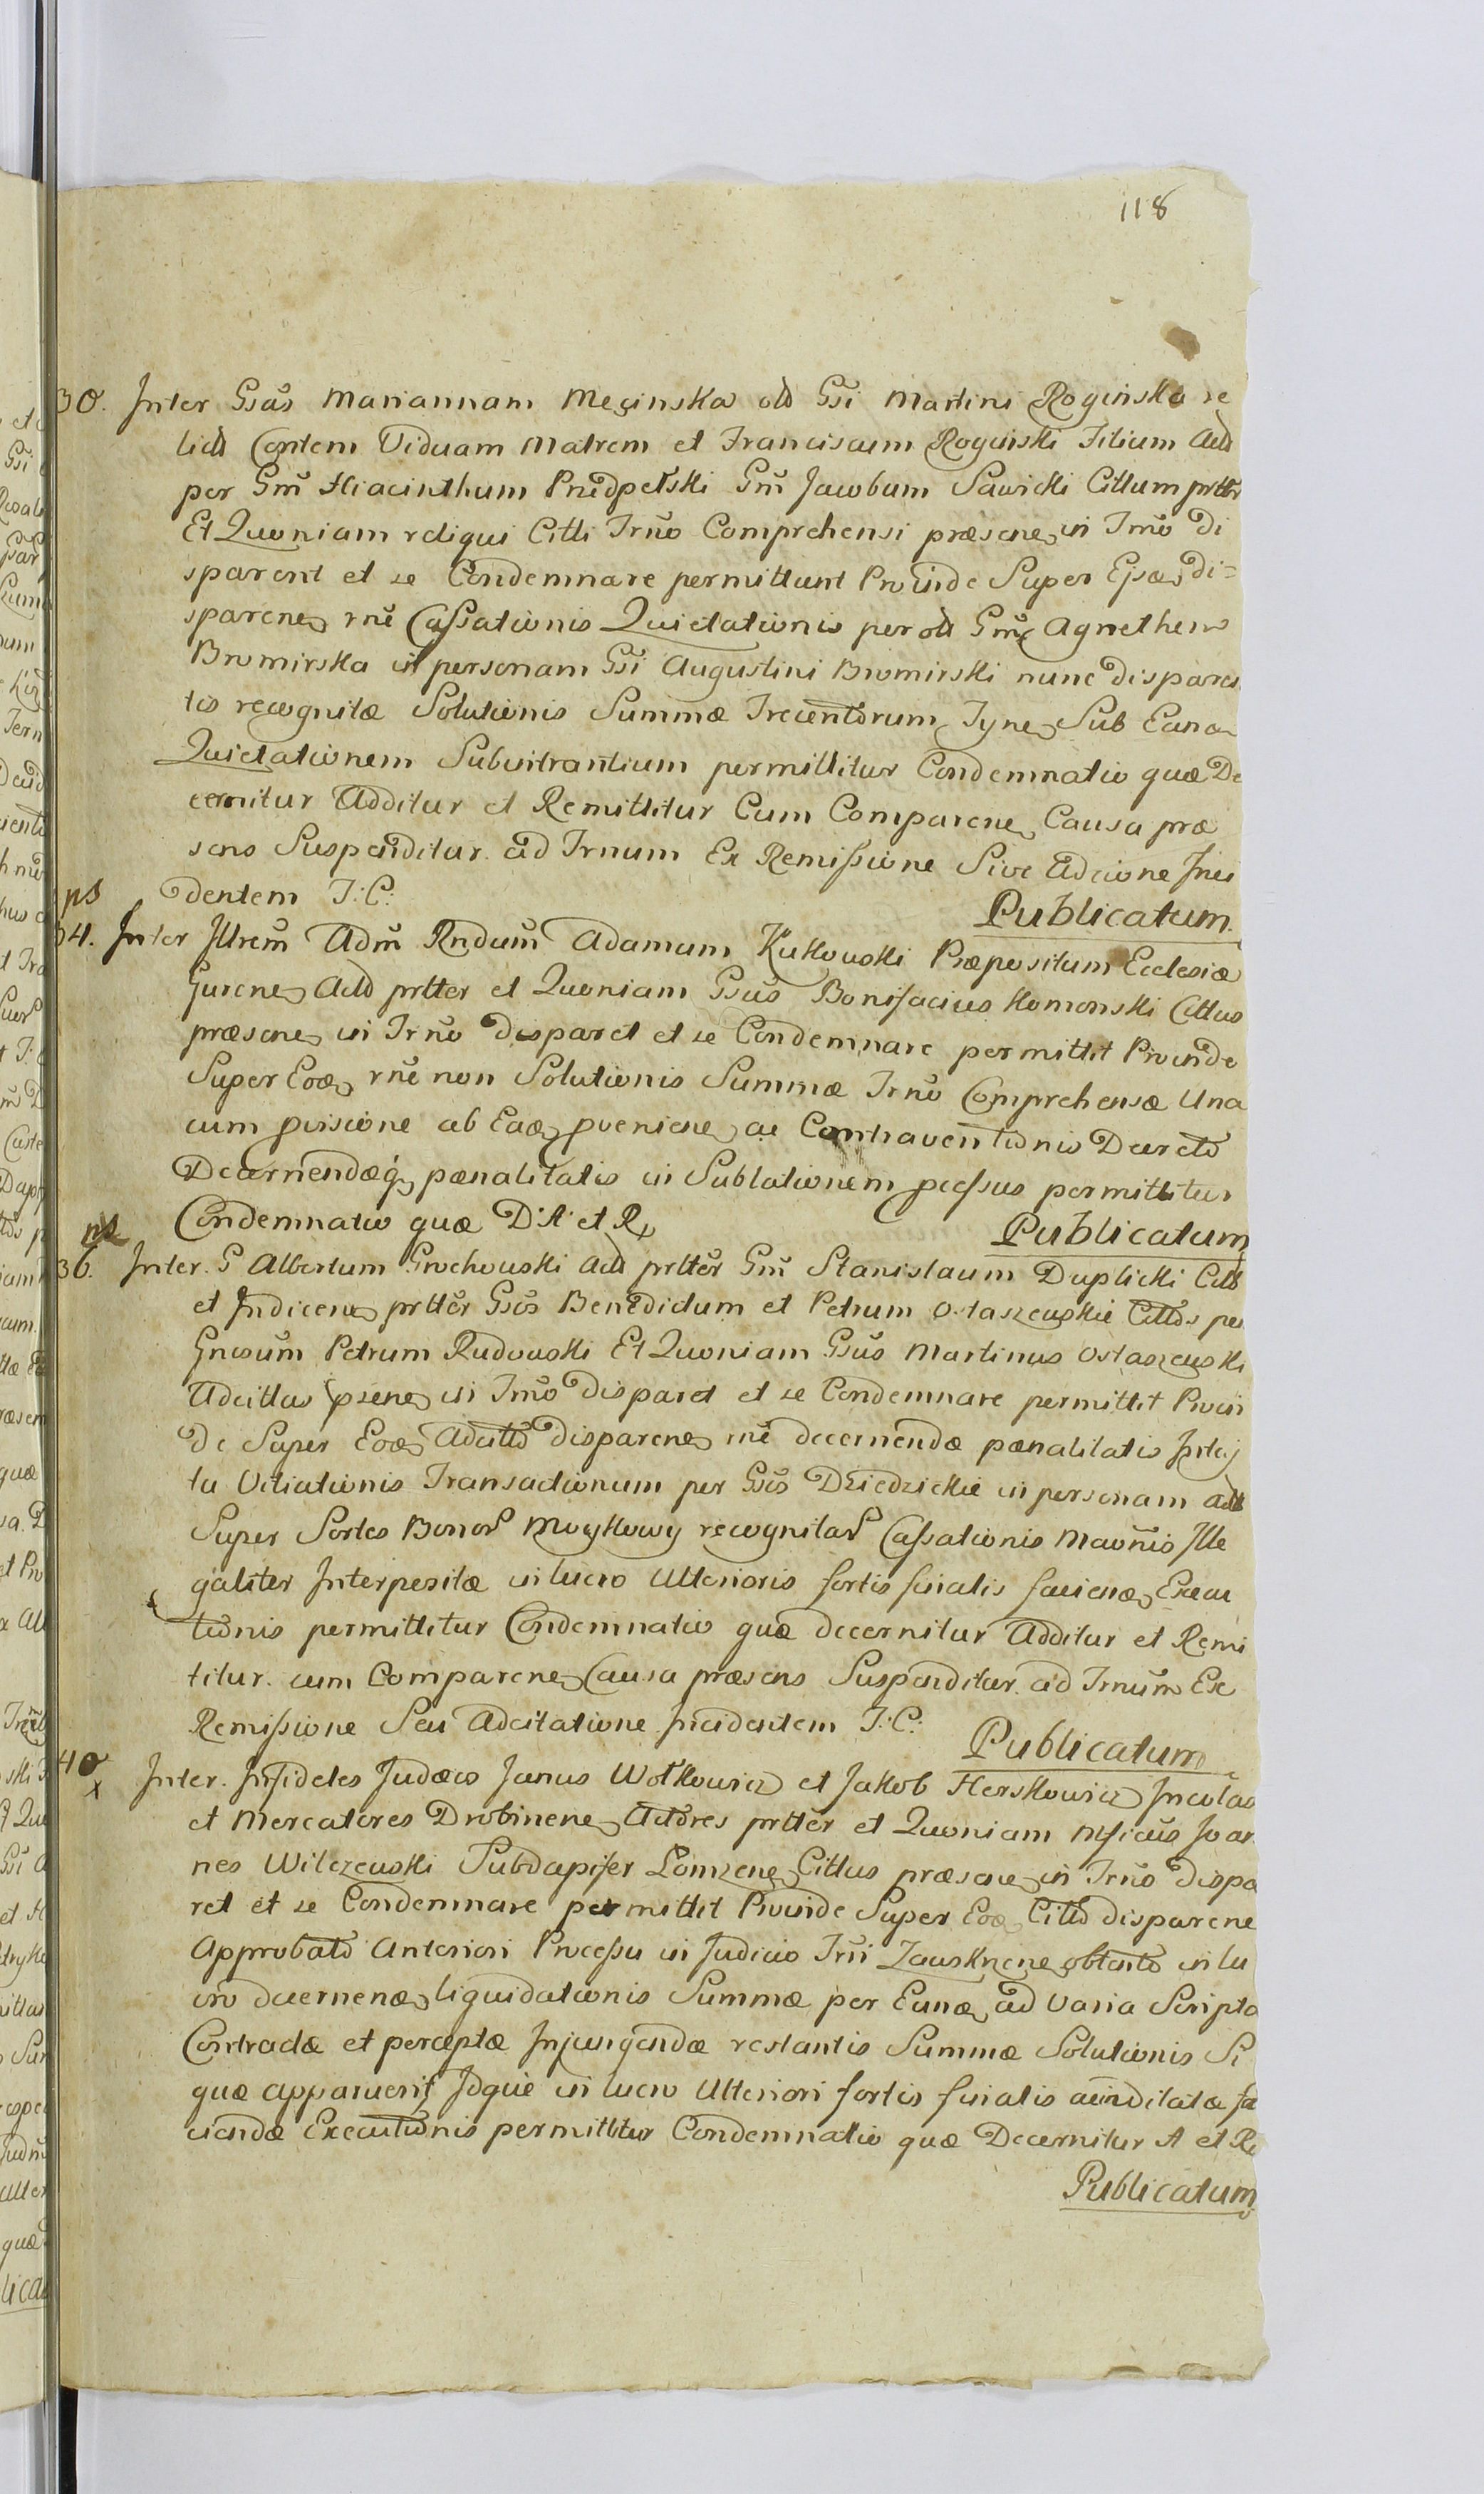 118
30. Inter Gsas Mariannam Meginska old Gsi Martini Roginski re
lict Contem Viduam Matrem et Franciscum Roginski Filium Act
per Gm̃ Hiacinthum Przedpełski Gm̃ Jacobum Sawicki Cittum prttr
Et Quoniam reliqui Citti Trño Comprehensi præsene in Trño Di
sparent et se Condemnare permittunt Proinde Super Ejsæ di=
sparene rñe Cassationis Quietationis per old Gm̃ Agnethem
Bromirska in personam Gsi Augustini Bromirski nunc disparen
tis recognitæ Solutionis Summæ Trecentorum Tyne Sub Eana
Quietationem Subintrantium permittitur Condemnatio quæ De
cernitur Additur et Remittitur Cum Comparene Causa præ
sens Suspenditur ad Trnum Ex Remissione Sive Adcione Inci
ps dentem I: C: Publicatum
34. Inter Illrem Adm̃ Rndum Adamum Kutkowski Præpositum Ecclesiæ
Gurene Act prtter et Quoniam Gsus Bonifacius Komonski Cittus
præsene in Trño disparet et se Condemnare permittit Proinde
Super Eoæ rñe non Solutionis Summæ Trño Comprehensæ Una
cum pvisione ab Eaæ pveniene ac Contraventionis Decreto
Decernendæq pænalitatis in Sublationem pcessus permittitur
ps Condemnatio quæ D: A: et R Publicatum
36. Inter G Albertum Grochowski Act prtter Gm̃ Stanislaum Duplicki Citt
et Indicene prtter Gsos Benedictum et Petrum Ostaszewskie Cittos per
Gnosum Petrum Rudowski Et Quoniam Gsus Martinus Ostaszewski
Adcittus psene in Trño disparet et se Condemnare permittit Proin
de Super Eoæ Adcitto disparene rñe decernendæ pænalitatis
tu Vitiationis Transactionum per Gsos Dziedzickie in personam act
Super Sortes Bonor Moykowy recognitar Cassationis Ille
galiter Interpositæ in lucro Ulterioris fortis finalis faciene Execu
tionis permittitur Condemnatio quæ decernitur Additur et Remi
titur cum Comparene Causa præsens Suspenditur ad Trnum Ex
Remissione Seu Adcitatione Incidentem I: C: Publicatum
40 Inter Infideles Judæos Janus Wołkowicz et Jakob Herskowicz Incolas
x et Mercatores Drobinene Actores prtter et Quoniam Mficus Joan
nes Wilczewski Subdapifer Łomzene Cittus præsene in Trño dispa
ret et se Condemnare permittit Proinde Super Eoæ Citto disparene
Approbato Anteriori Processu in Judicio Trñi Zauskrzene obtento in lu
cro decernenæ liquidationis Summæ per Eunæ ad Varia Scripta
Contractæ et perceptæ Injungendæ restantis Summæ Solutionis Si
quæ apparuerit Idque in lucro Ulteriori fortis finalis fa
ciendæ Executionis permittitur Condemnatio quæ Decernitur A et R
Publicatum